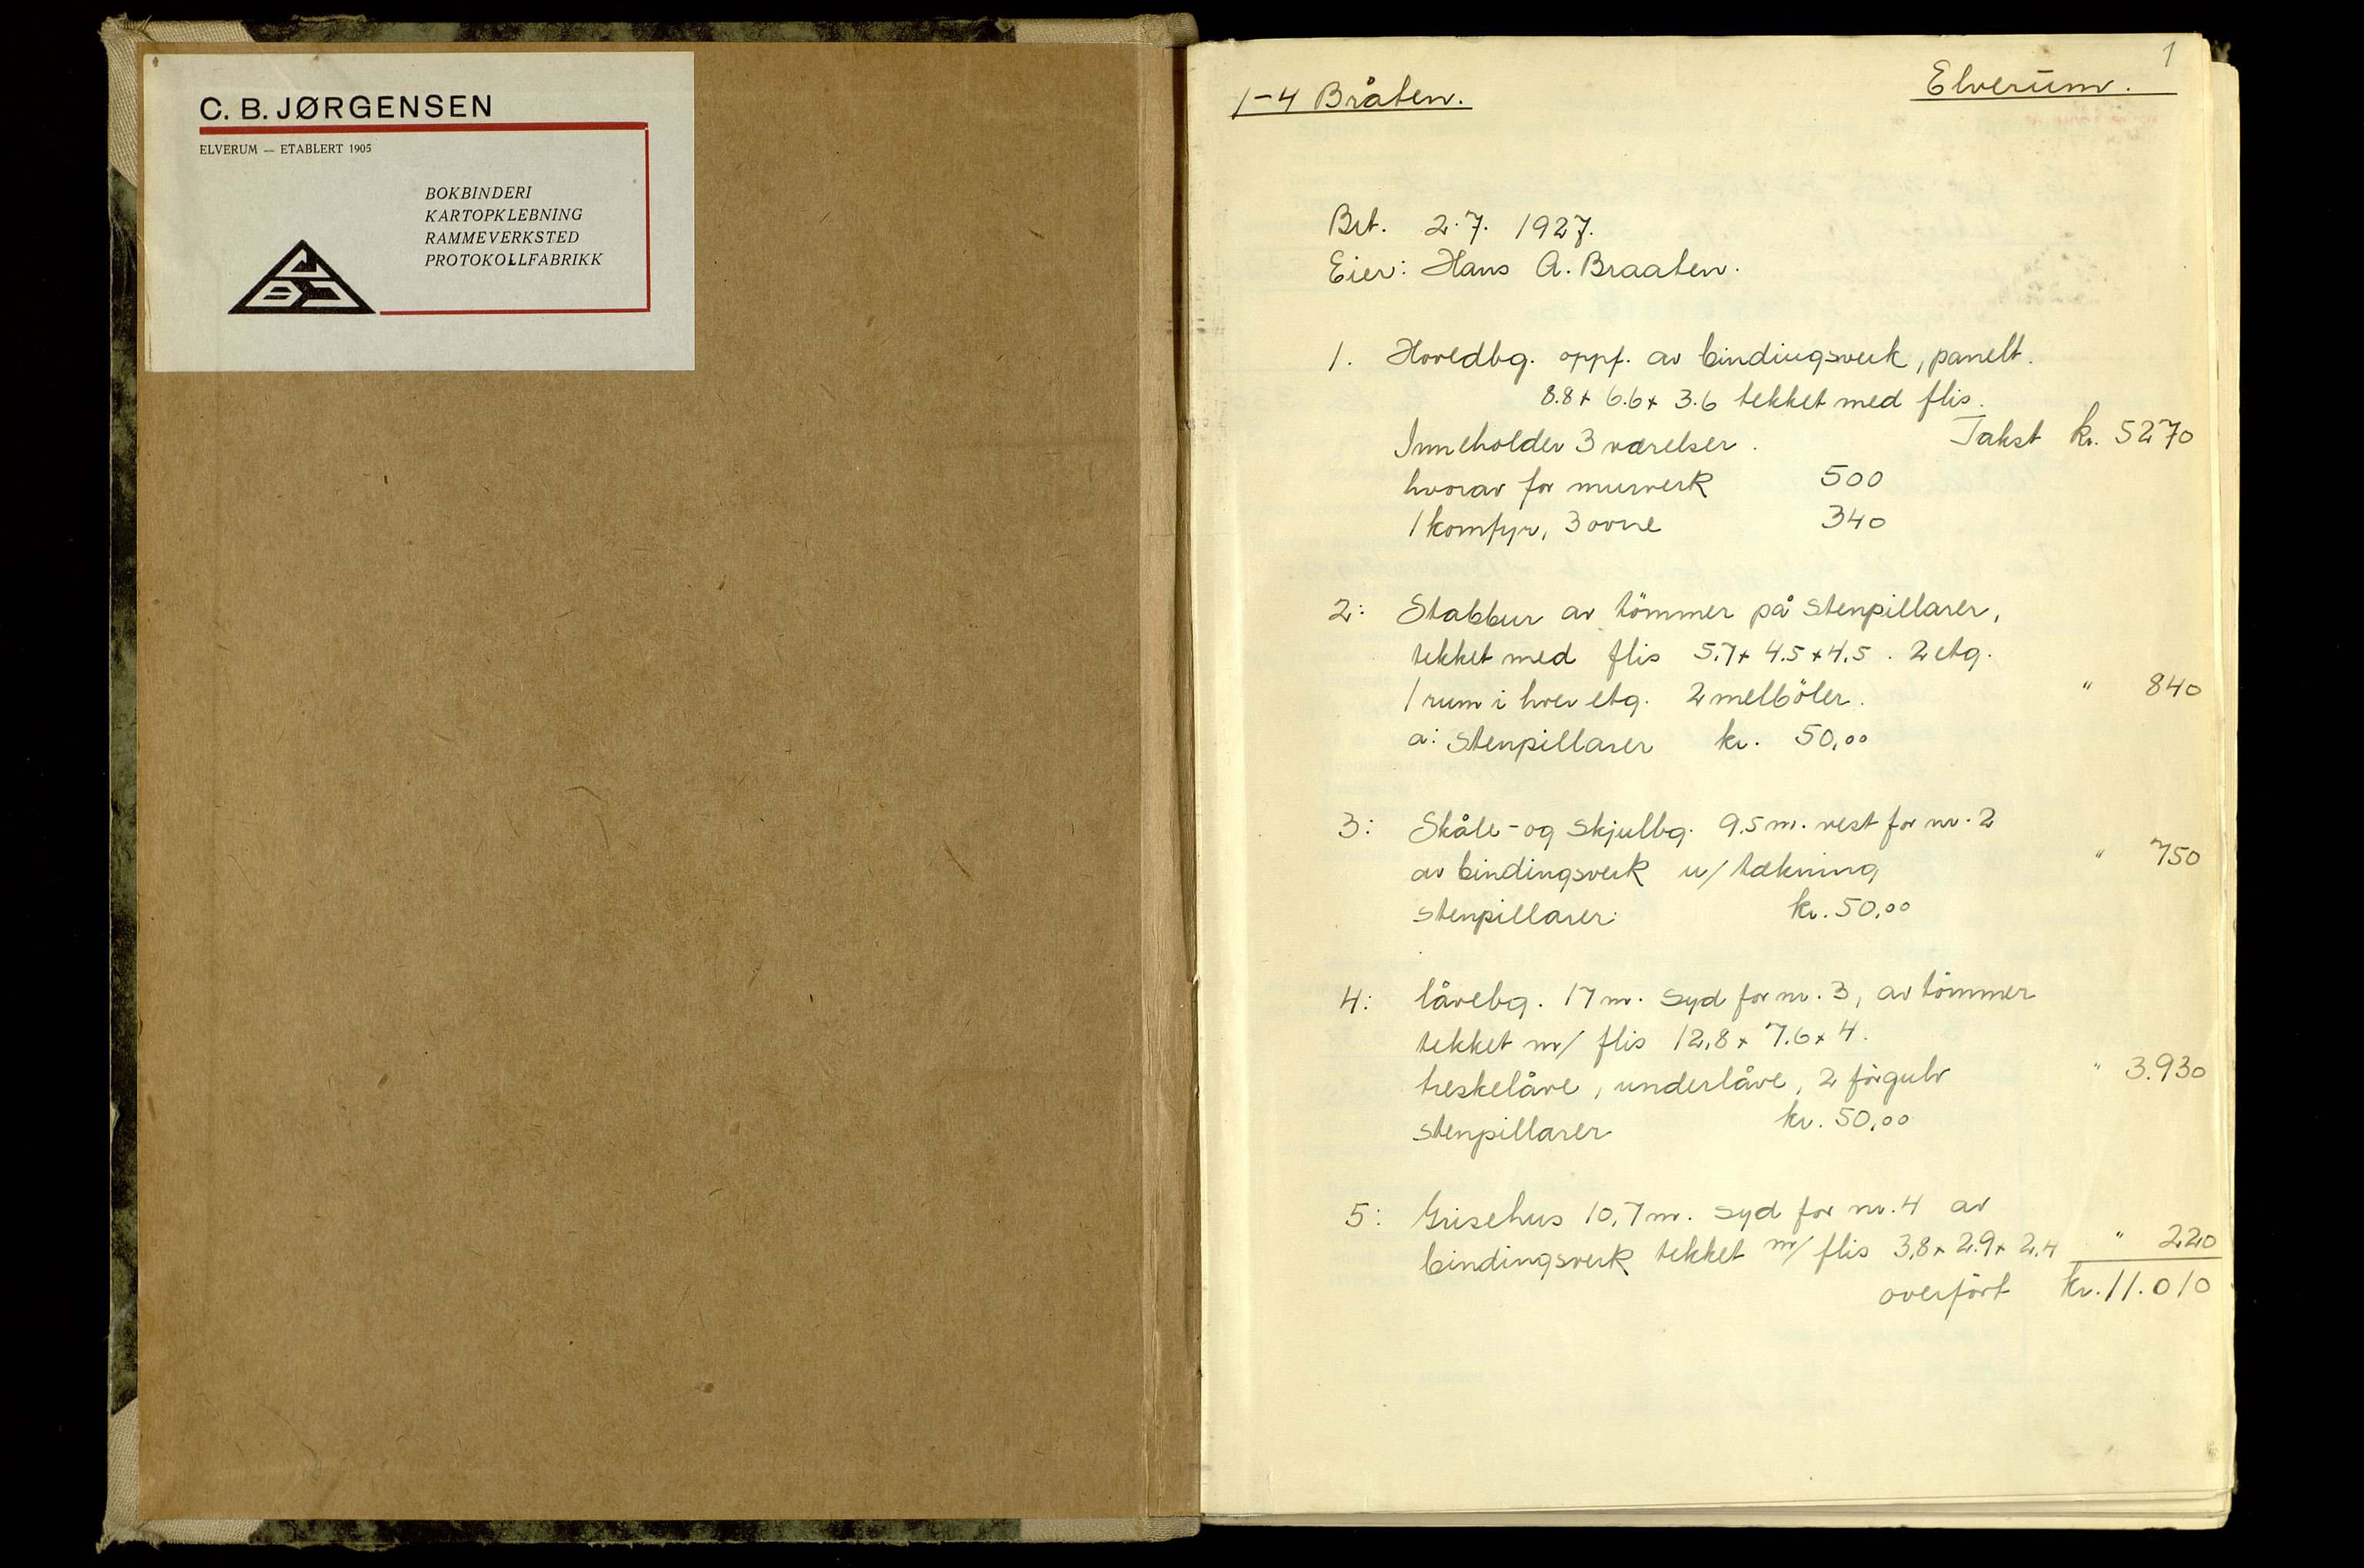 C. B. JØRGENSEN
ELVERUM — ETABLERT 1905
BOKBINDERI
KARTOPKLEBNING
RAMMEVERKSTED
PROTOKOLLFABRIKK
CBJ
1
1-4 Bråten.
Elverum.
Brt. 2.7. 1927.
Eier: Hans A. Braaten.
1. Hovedbg. oppf. av bindingsverk, panelt.
8.8 x 6.6 x 3.6 tekket med flis.
Inneholder 3 værelser. Takst kr. 5270
hvorav for murverk 500
1 komfyr, 3 ovne 340
2: Stabbur av tömmer på stenpillarer,
tekket med flis 5.7 x 4.5 x 4.5. 2 etg.
1 rum i hver etg. 2 melböler. " 840
a: stenpillarer kr. 50,00
3: Skåle- og skjulbg. 9.5 m. vest for nr. 2
av bindingsverk u/ tækning " 750
stenpillarer: kr. 50,00
4: låvebg. 17 m. syd for nr. 3, av tömmer
tekket m/ flis 12,8 x 7.6 x 4.
treskelåve, underlåve, 2 fôrgulv " 3.930
stenpillarer kr. 50,00
5: Grisehus 10,7 m. syd for nr. 4 av
bindingsverk tekket m/ flis 3,8 x 2.9 x 2.4 " 220
overfört kr. 11.010